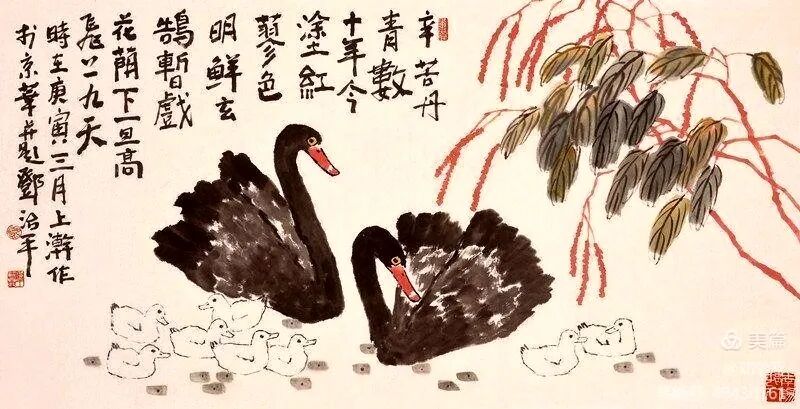 辛苦丹
青數
十年今
塗紅
蓼色
明鮮玄
鵠暫戲
花蔭下一旦高
飛上九天
時在庚寅三月上澣作
於京華并題鄧治平
美篇